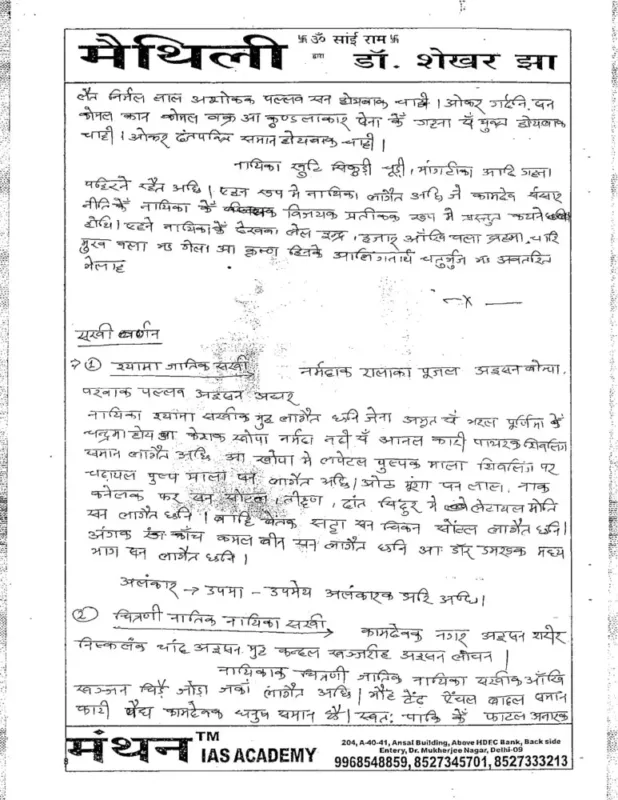 卐 ॐ सांई राम 卐
मैथिली द्वारा डॉ. शेखर झा
लैत निर्मल लाल अशोकक पल्लव सन होयबाक चाही। ओकर गर्दनि
कोमल कान कोमल वक्र आ कुण्डलाकार गहना सँ युक्त होयबाक
चाही। ओकर दंतपंक्ति समान होयबाक चाही।
नायिका चूड़ी, मांगटीका आदि गहना
पहिरने रहैत अछि। एहन रूप मे नायिका लागैत अछि जे कामदेव संसार
नीति कें नायिका कें विजयक प्रतीकक रूप मे प्रस्तुत कयने
होथि। एहने नायिका कें देखबा लेल इन्द्र, हजार आँखि वला ब्रह्मा, चारि
मुख वला भऽ गेला आ कृष्ण हिनके चतुर्भुज भऽ अवतरित
भेलाह
—x—
सखी वर्णन
→ ① श्यामा जातिक सखी → नर्मदाक पूजल अइसन
पल्लव अइसन अधर
नायिका श्यामा सखीक मुह लागैत छनि जेना अमृत सँ भरल पूर्णिमा कें
चन्द्रमा होय आ केशक खोपा नर्मदा नदी सँ आनल कारी पाथरक शिवलिंग
समान लागैत अछि आ खोपा मे लपेटल पुष्पक माला शिवलिंग पर
चढ़ायल पुष्प माला सन लागैत अछि। ओठ मूंगा सन लाल, नाक
फर सन तीक्ष्ण, दांत सिंदुर मे लेटायल मोति
सन लागैत छनि। बाहि बेतक सट्टा सन चिकन लागैत छनि।
अंगक रंग काँच कमल सन लागैत छनि आ डाँर डमरुक मध्य
भाग सन लागैत छनि।
अलंकार → उपमा - उपमेय अलंकारक अछि।
② चित्रणी जातिक नायिका सखी → कामदेवक नगर अइसन शरीर
निष्कलंक चांद अइसन मुह कन्दल खञ्जरीट अइसन लोचन।
नायिकाक चित्रणी जातिक नायिका सखीक आँखि
खञ्जन चिड़ै जोड़ा जकां लागैत अछि। समान
कारी कामदेवक धनुष समान छै। स्वतः कें
मंथन™ IAS ACADEMY
204, A-40-41, Ansal Building, Above HDEC Bank, Back side
Entery, Dr. Mukherjee Nagar, Delhi-09
9968548859, 8527345701, 8527333213
8